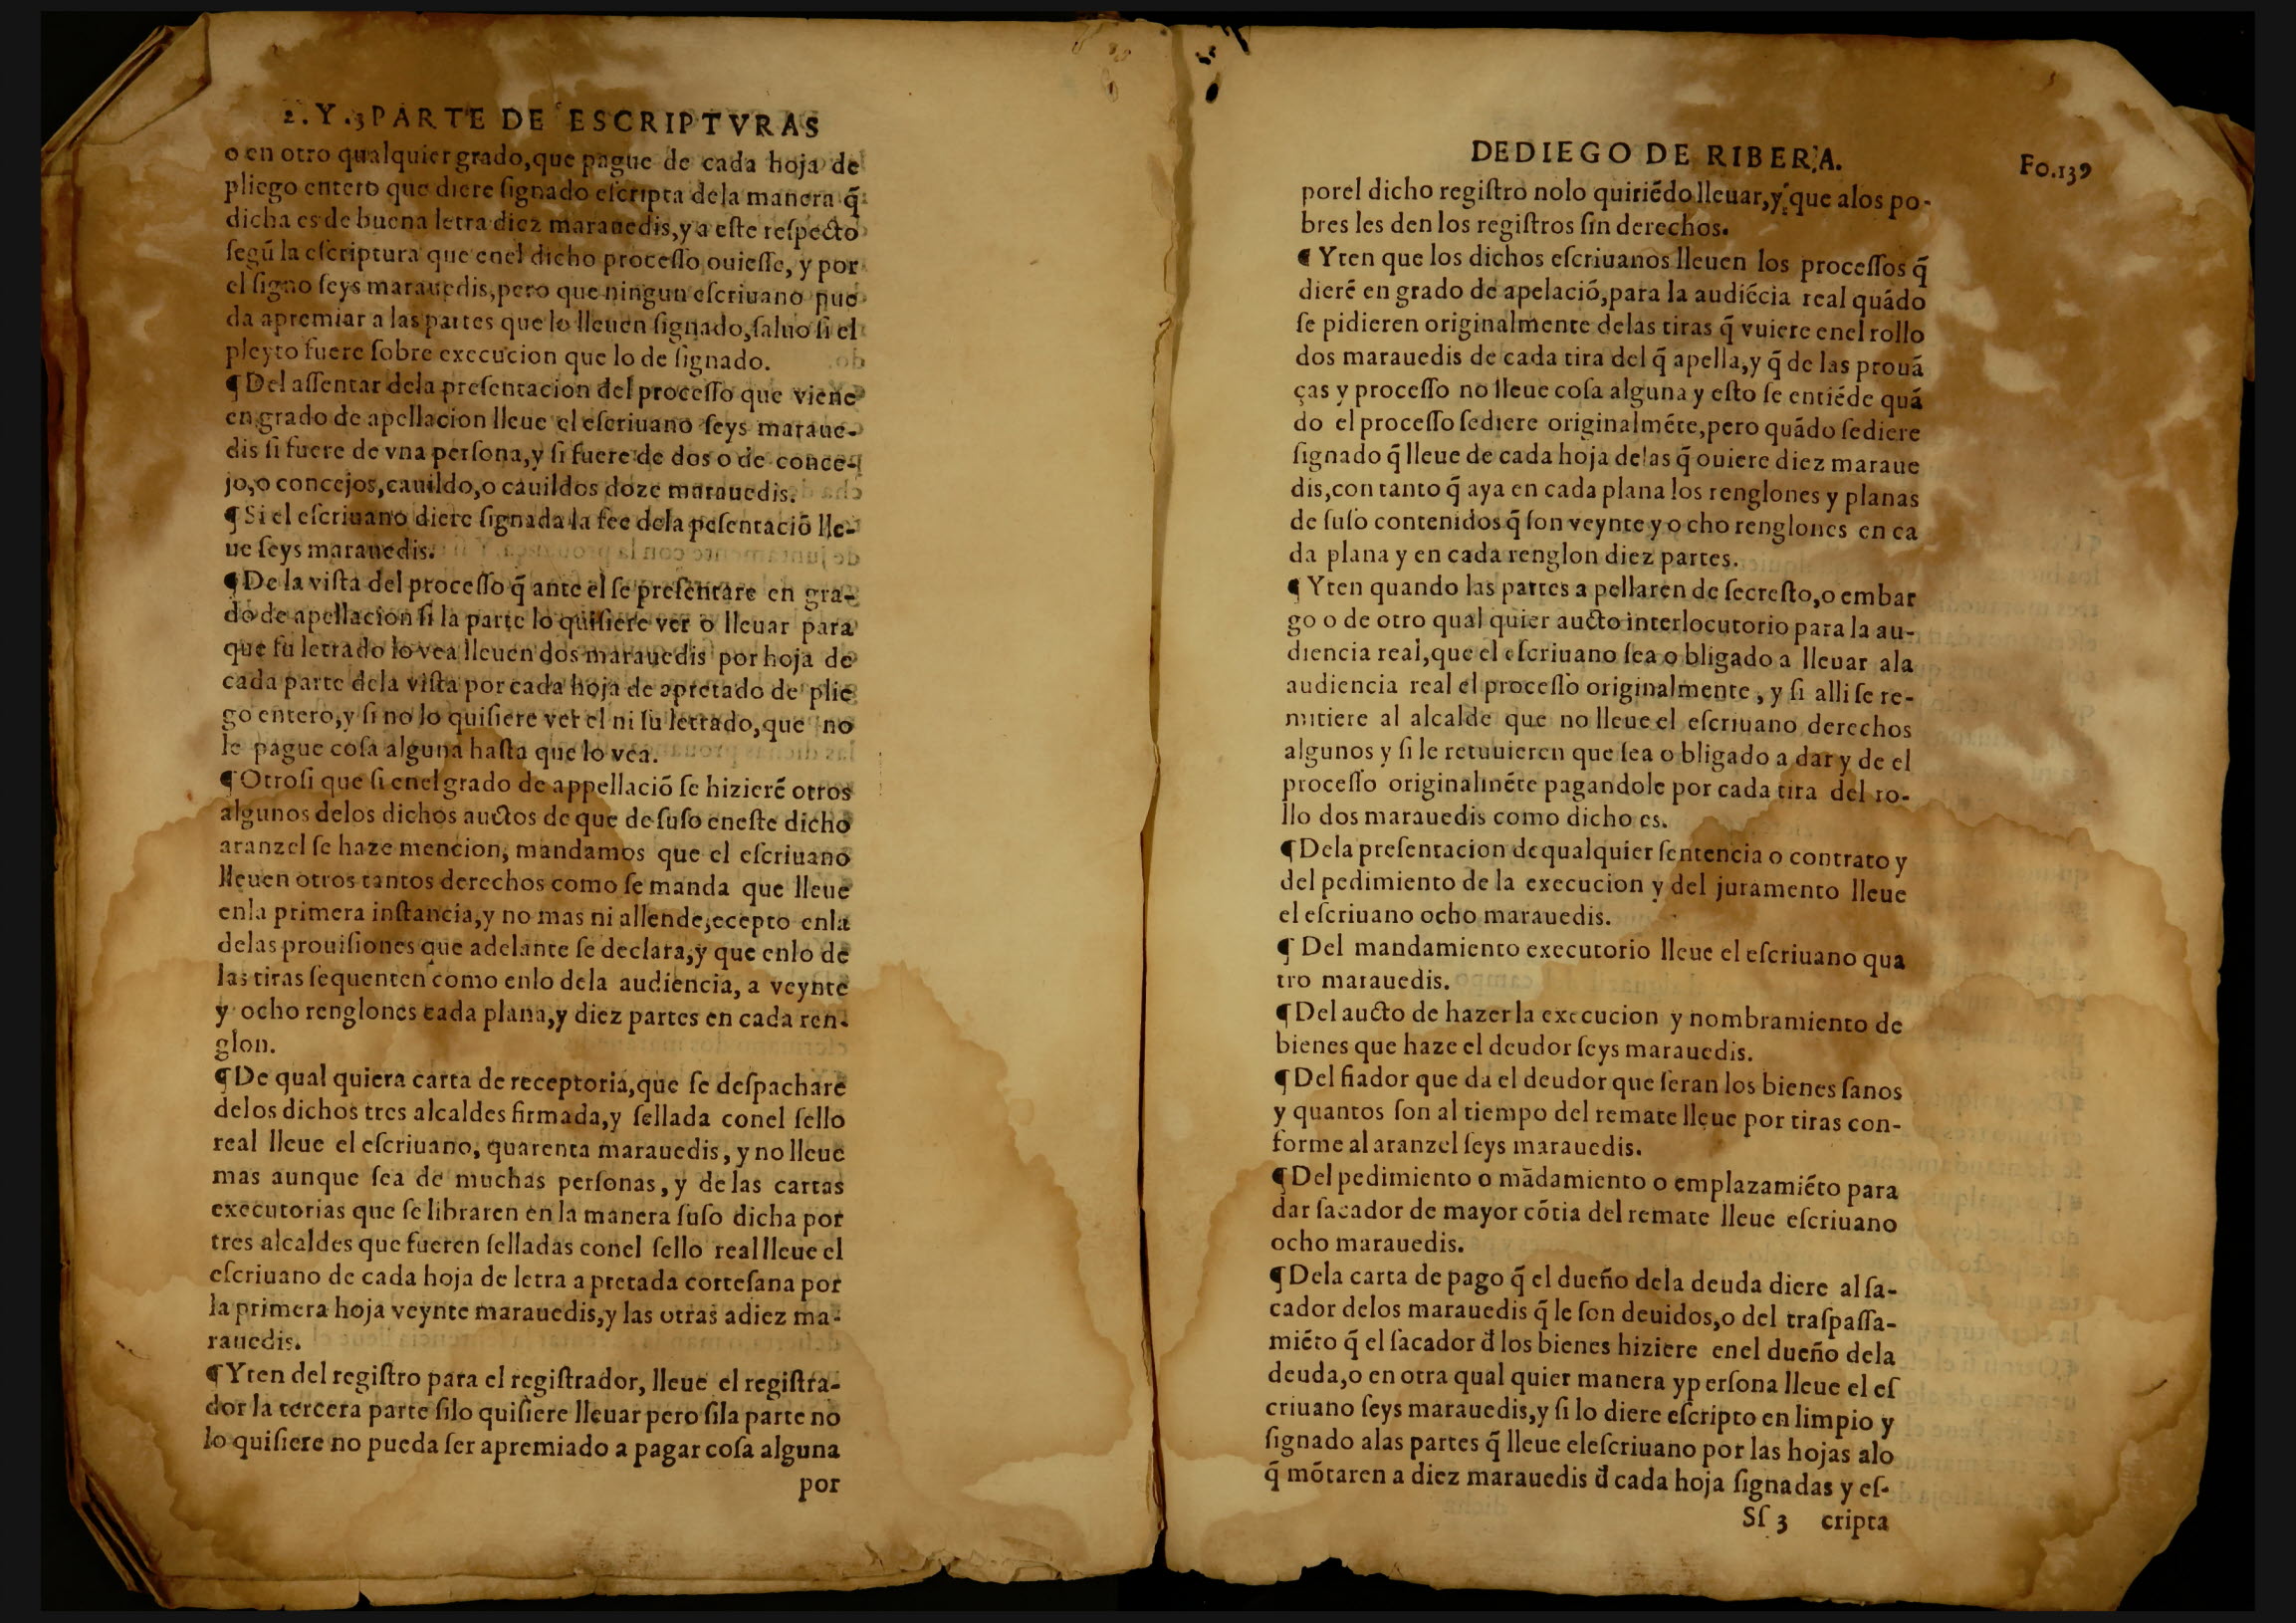 2. Y .3 PARTE DE ESCRIPTVRAS
o en otro qualquier grado, que pague de cada hoja de
pliego entero que diere ſignado eſcripta dela manera q̃
dicha es de buena letra diez marauedis, y a eſte reſpecto
ſegũ la eſcriptura que enel dicho proceſſo ouieſſe, y por
el ſigno ſeys marauedis, pero que ningun eſcriuano pue
da apremiar a las partes que lo lleuen ſignado, ſaluo ſi el
pleyto fuere ſobre execucion que lo de ſignado.
¶ Del aſſentar dela preſentacion del proceſſo que viene
en grado de apellacion lleue el eſcriuano ſeys maraue-
dis ſi fuere de vna perſona, y ſi fuere de dos o de conce-
jo, o concejos, cauildo, o cauildos doze marauedis.
¶ Si el eſcriuano diere ſignada la fee dela peſentaciõ lle-
ue ſeys marauedis.
¶ De la viſta del proceſſo q̃ ante el ſe preſentare en gra-
do de apellacion ſi la parte lo quiſiere ver o lleuar para
que ſu letrado lo vea lleuen dos marauedis por hoja de
cada parte dela viſta por cada hoja de apretado de plie
go entero, y ſi no lo quiſiere ver el ni ſu letrado, que no
le pague coſa alguna haſta que lo vea.
¶ Otroſi que ſi enel grado de appellaciõ ſe hizierẽ otros
algunos delos dichos auctos de que de ſuſo eneſte dicho
aranzel ſe haze mencion, mandamos que el eſcriuano
lleuen otros tantos derechos como ſe manda que lleue
enla primera inſtancia, y no mas ni allende, ecepto enla
delas prouiſiones que adelante ſe declara, y que enlo de
las tiras ſequenten como enlo dela audiencia, a veynte
y ocho renglones cada plana, y diez partes en cada ren-
glon.
¶ De qual quiera carta de receptoria, que ſe deſpachare
delos dichos tres alcaldes firmada, y ſellada conel ſello
real lleue el eſcriuano, quarenta marauedis, y no lleue
mas aunque ſea de muchas perſonas, y de las cartas
executorias que ſe libraren en la manera ſuſo dicha por
tres alcaldes que fueren ſelladas conel ſello real lleue el
eſcriuano de cada hoja de letra apretada corteſana por
la primera hoja veynte marauedis, y las otras adiez ma-
rauedis.
¶ Yten del regiſtro para el regiſtrador, lleue el regiſtra-
dor la tercera parte ſilo quiſiere lleuar pero ſila parte no
lo quiſiere no pueda ſer apremiado a pagar coſa alguna
por
DEDIEGO DE RIBERA. Fo.139
porel dicho regiſtro nolo quiriẽdo lleuar, y que alos po-
bres les den los regiſtros ſin derechos.
¶ Yten que los dichos eſcriuanos lleuen los proceſſos q̃
dierẽ en grado de apelaciõ, para la audiẽcia real quãdo
ſe pidieren originalmente delas tiras q̃ vuiere enel rollo
dos marauedis de cada tira del q̃ apella, y q̃ de las prouã
ças y proceſſo no lleue coſa alguna y eſto ſe entiẽde quã
do el proceſſo ſediere originalmẽte, pero quãdo ſediere
ſignado q̃ lleue de cada hoja delas q̃ ouiere diez maraue
dis, con tanto q̃ aya en cada plana los renglones y planas
de ſuſo contenidos q̃ ſon veynte y o cho renglones en ca
da plana y en cada renglon diez partes.
¶ Yten quando las partes a pellaren de ſecreſto, o embar
go o de otro qual quier aucto interlocutorio para la au-
diencia real, que el eſcriuano ſea o bligado a lleuar ala
audiencia real el proceſſo originalmente, y ſi alli ſe re-
mitiere al alcalde que no lleue el eſcriuano derechos
algunos y ſi le retuuieren que ſea o bligado a dar y de el
proceſſo originalmẽte pagandole por cada tira del ro-
llo dos marauedis como dicho es.
¶ Dela preſentacion de qualquier ſentencia o contrato y
del pedimiento de la execucion y del juramento lleue
el eſcriuano ocho marauedis.
¶ Del mandamiento executorio lleue el eſcriuano qua
tro marauedis.
¶ Del aucto de hazer la execucion y nombramiento de
bienes que haze el deudor ſeys marauedis.
¶ Del fiador que da el deudor que ſeran los bienes ſanos
y quantos ſon al tiempo del remate lleue por tiras con-
forme al aranzel ſeys marauedis.
¶ Del pedimiento o mãdamiento o emplazamiẽto para
dar ſacador de mayor cõtia del remate lleue eſcriuano
ocho marauedis.
¶ Dela carta de pago q̃ el dueño dela deuda diere al ſa-
cador delos marauedis q̃ le ſon deuidos, o del traſpaſſa-
miẽto q̃ el ſacador d̃ los bienes hiziere enel dueño dela
deuda, o en otra qual quier manera yperſona lleue el eſ
criuano ſeys marauedis, y ſi lo diere eſcripto en limpio y
ſignado alas partes q̃ lleue eleſcriuano por las hojas alo
q̃ mõtaren a diez marauedis d̃ cada hoja ſignadas y eſ-
Sſ 3 cripta